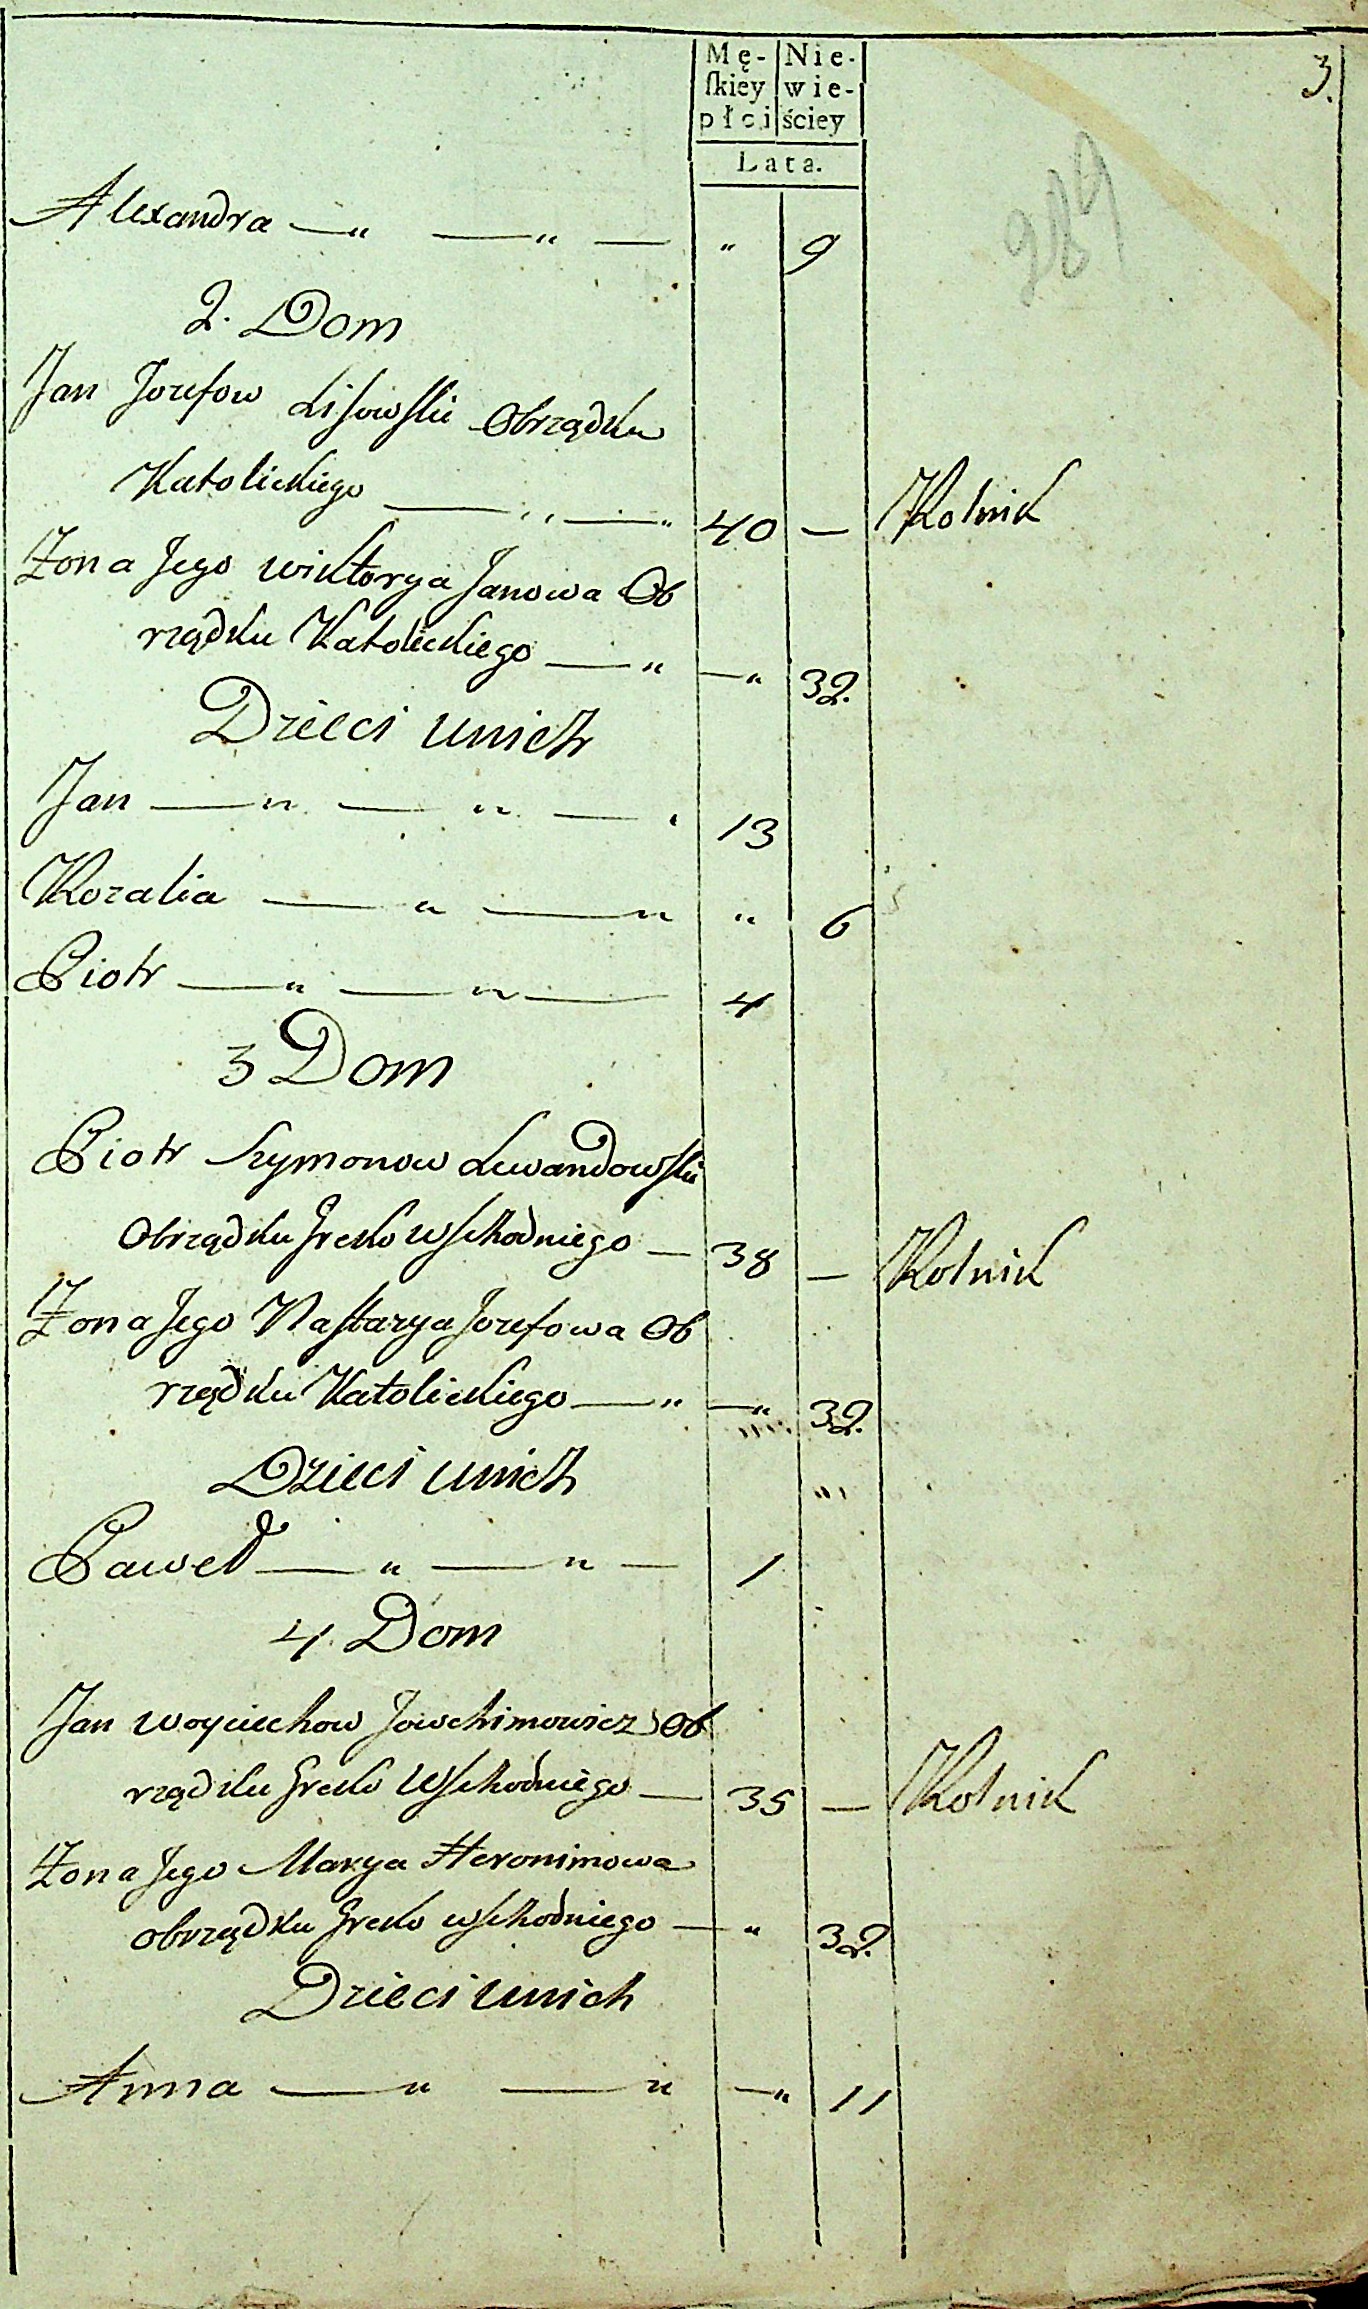 Mę- Nie-
ſkiey wie-
płci ściey
3.
Lata.
289
Alexandra — " — " — " 9
2. Dom
Jan Jozefow Lisowski Obrządku
Katolickiego — " — " 40 — Rolnik
Żona Jego Wiktorya Janowa Ob
rządku Katolickiego — " — " 32.
Dzieci unich
Jan — " — " — " 13
Rozalia — " — " " 6
Piotr — " — " — 4
3 Dom
Piotr Szymonow Lewandowski
Obrządku Greko Wschodniego — 38 — Rolnik
Żona Jego Nastazya Jozefowa Ob
rządku Katolickiego — " — " 32.
Dzieci unich
Paweł — " — " — 1
4. Dom
Jan Woyciechow Jowchimowicz Ob
rządku Greko Wschodniego — 35 — Rolnik
Żona Jego Marya Heronimowa
obrządku Greko wschodniego — " 32.
Dzieci unich
Anna — " — " — " 11